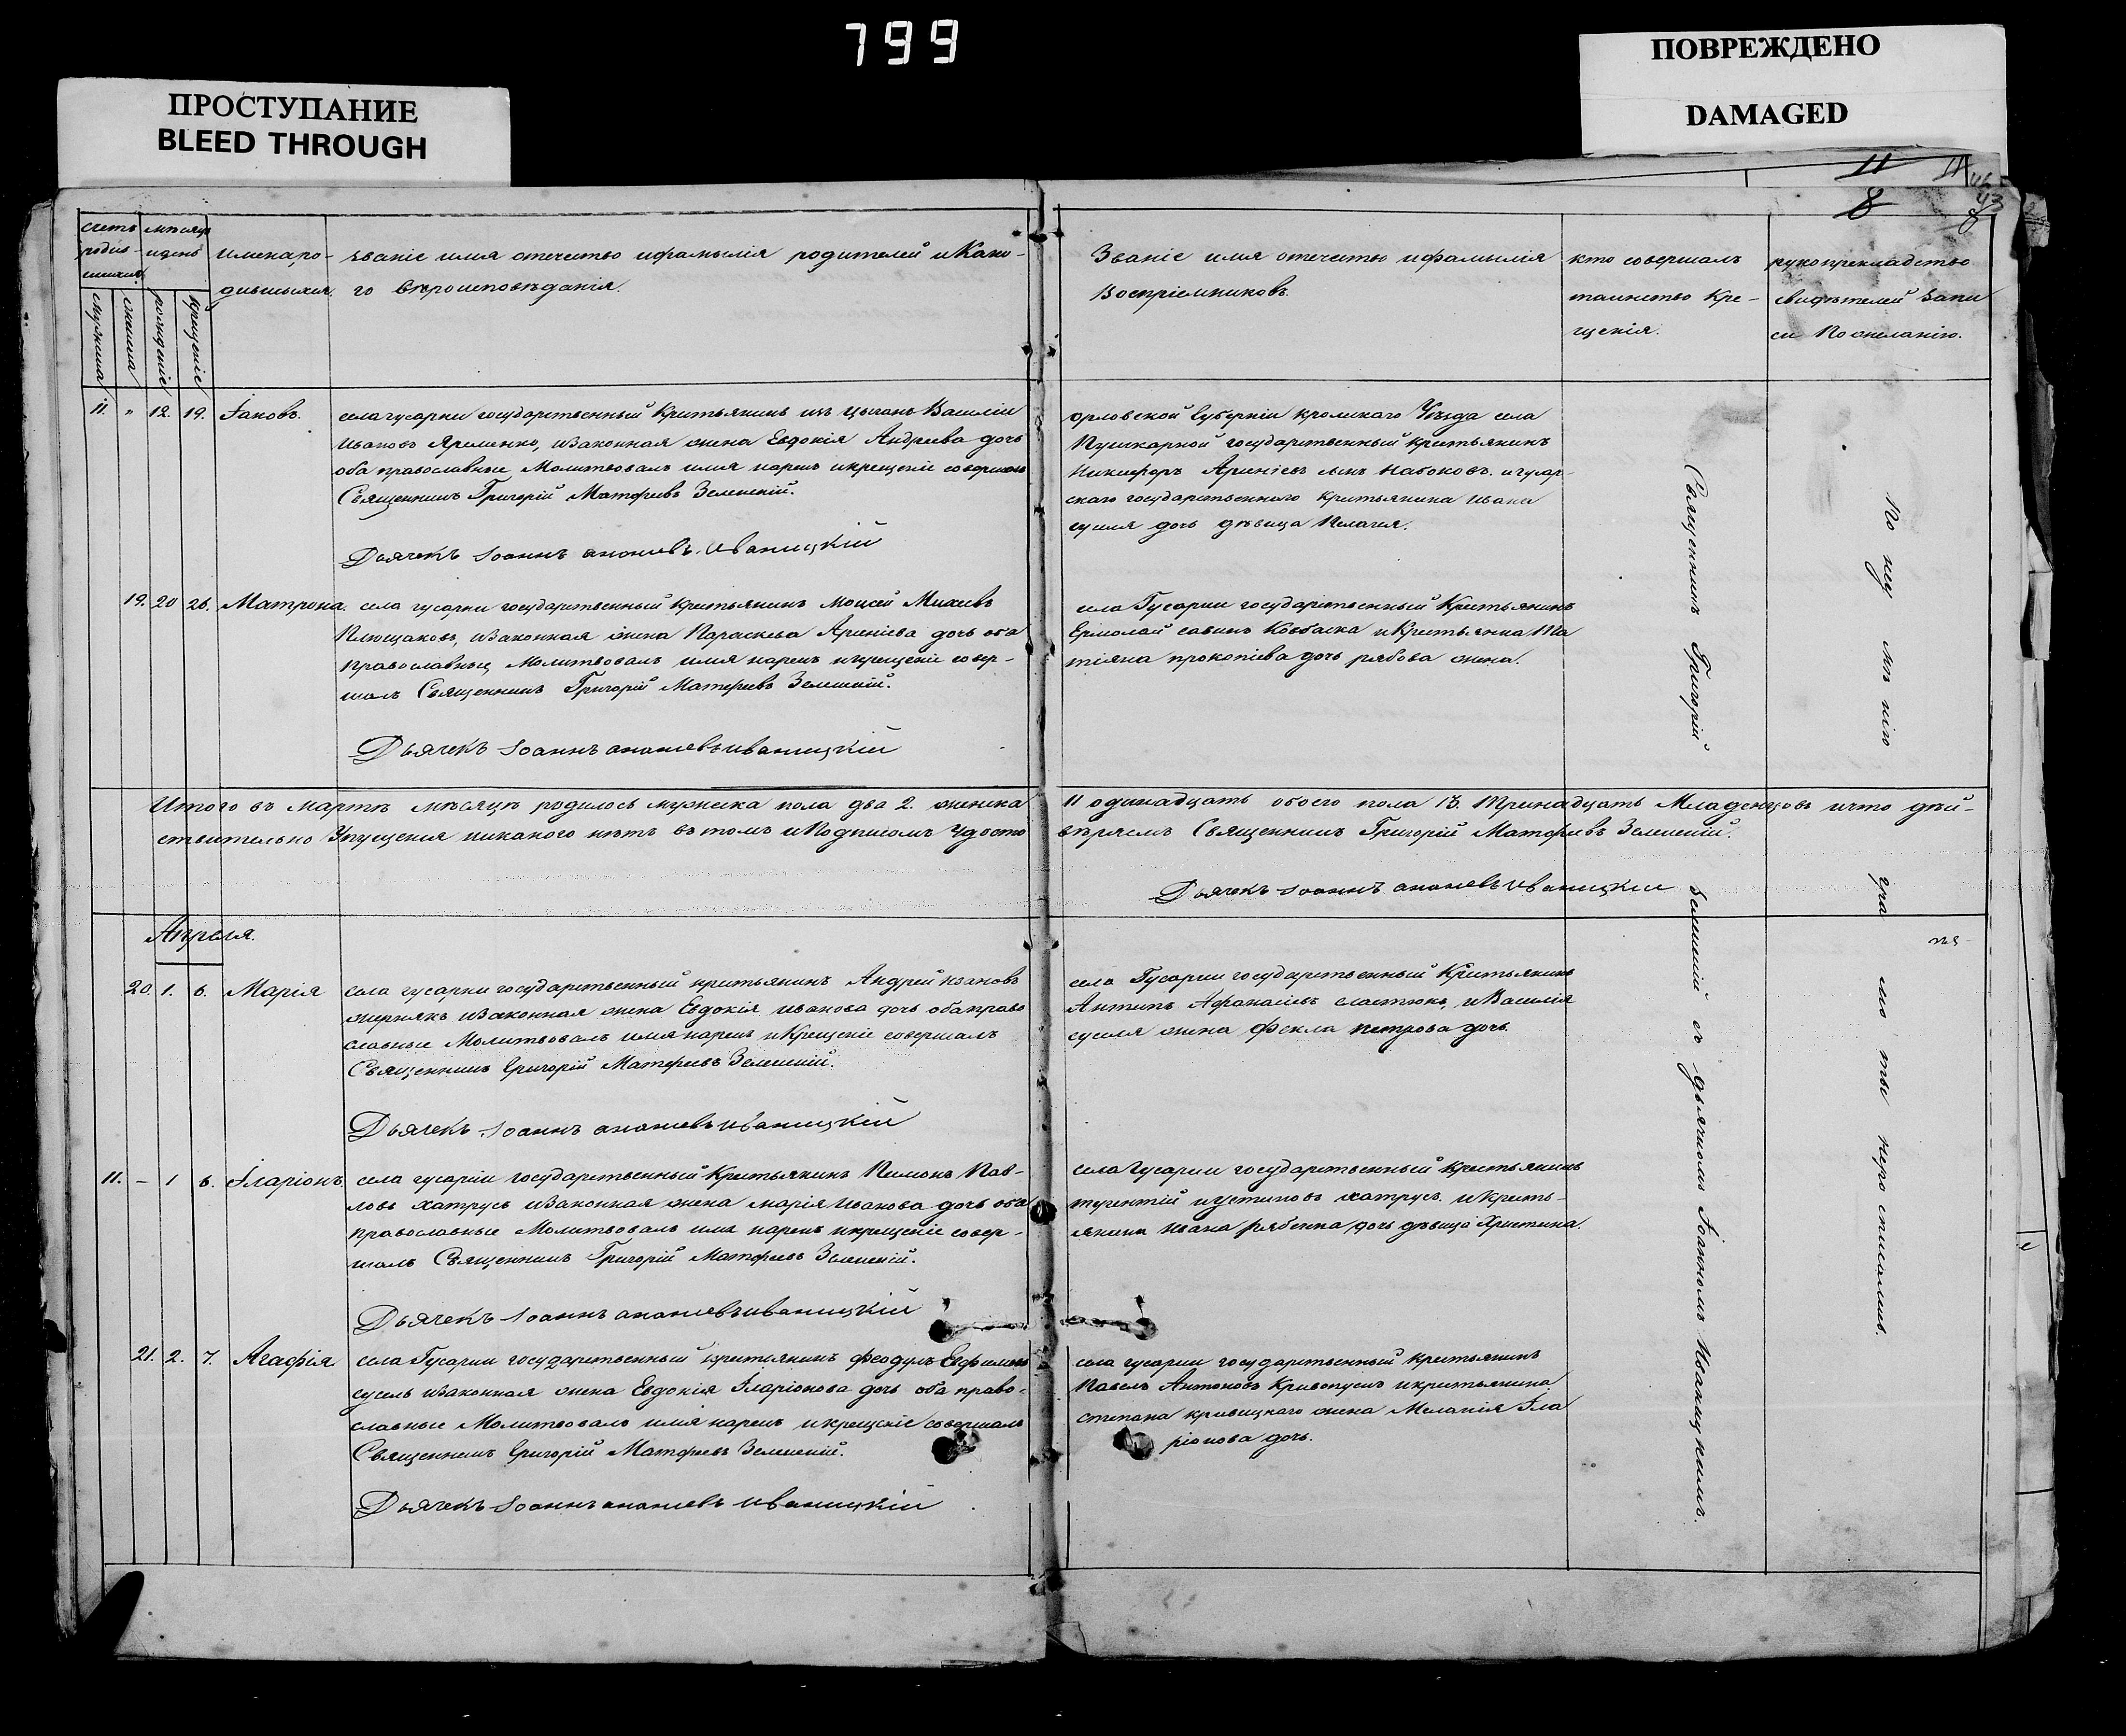 799
ПРОСТУПАНИЕ
BLEED THROUGH
ПОВРЕЖДЕНО
DAMAGED
11
8
43
8
счетъ
родив-
шихся.
мѣсяцъ
и день
имена ро-
дившихся.
званіе имя отечество и фамылія родителей и Како-
го вѣроисповѣданія.
мужска
женска
рожденіе
крещеніе
Званіе имя отечество и фамылія
Воспріемниковъ.
кто совершалъ
таинство Кре-
щенія.
рукоприкладство
свидѣтелей запи
си По желанію.
11. " 12. 19. Іаковъ.
села гусарки государственный Крестьянинъ изъ цыганъ Василій
Ивановъ Яременко, изаконная жена Евдокія Андреева дочь
оба православные Молитвовалъ имя нарекъ икрещеніе совершалъ
Священникъ Григорій Матфеевъ Зеленскій.
Дьячекъ Іоаннъ ананіевъ Иваницкій
орловской Губерніи кромскаго Уѣзда села
Пушкарной государственный крестьянинъ
Никифоръ Арсеніевъ сынъ Набоковъ. и гусар-
скаго государственнаго крестьянина Ивана
суселя дочь дѣвица Пелагія.
19. 20 26. Матрона.
села гусарки государственный крестьянинъ Моисей Михеевъ
Плющаковъ, изаконная жена Параскева Арсеніева дочь оба
православныя Молитвовалъ имя нарекъ икрещеніе совер-
шалъ Священникъ Григорій Матфеевъ Зеленскій.
Дьячекъ Іоаннъ ананіевъ иваницкій
села Гусарки государственный Крестьянинъ
Ермолай савинъ Ковбаска и Крестьянка Та
тіяна прокопіева дочь рябова жена.
Итого въ мартѣ мѣсяцѣ родилось мужеска пола два 2. женска
11 одинадцать обоего пола 13. Тринадцать Младенцовъ ичто дѣй-
ствительно Упущенія никакого нѣтъ въ томъ иПодписомъ Удосто
вѣряемъ Священникъ Григорій Матфеевъ Зеленскій.
Дьячекъ Іоаннъ ананіевъ Иваницкій
Апреля.
20. 1. 6. Марія
села гусарки государственный крестьянинъ Андрей
жернякъ изаконная жена Евдокія иванова дочь обаправо
славные Молитвовалъ имя нарекъ и Крещеніе совершалъ
Священникъ Григорій Матфеевъ Зеленскій.
Дьячекъ Іоаннъ ананіевъ иваницкій
села Гусарки государственный Крестьянинъ
Антипъ Афанасіевъ сластюкъ, и Василія
суселя жена Фекла петрова дочь.
11. - 1 6. Іларіонъ
села гусарки государственный Крестьянинъ Пименъ Пав-
ловъ хатрусъ изаконная жена марія Иванова дочь оба
православные Молитвовалъ имя нарекъ икрещеніе совер-
шалъ Священникъ Григорій Матфеевъ Зеленскій.
Дьячекъ Іоаннъ ананіевъ иваницкій
села Гусарки государственный крестьянинъ
терентій иустиновъ хатрусъ. и кресть-
янина Ивана рябенка дочь дѣвица Христина.
21. 2. 7. Агафія
села Гусарки государственный крестьянинъ Феодулъ Евфимовъ
сусель изаконная жена Евдокія Іларіонова дочь оба право-
славные Молитвовалъ имя нарекъ икрещеніе совершалъ
Священникъ Григорій Матфеевъ Зеленскій.
Дьячекъ Іоаннъ ананіевъ иваницкій
села гусарки государственный крестьянинъ
Павелъ Антоновъ Кривопускъ икрестьянина
степана кривицкаго жена Меланія Іла
ріонова дочь.
Священникъ Григорій Зеленскій съ дьячкомъ Іоанномъ Иваницкимъ.
По не имѣнію гра мо ты не росписались.